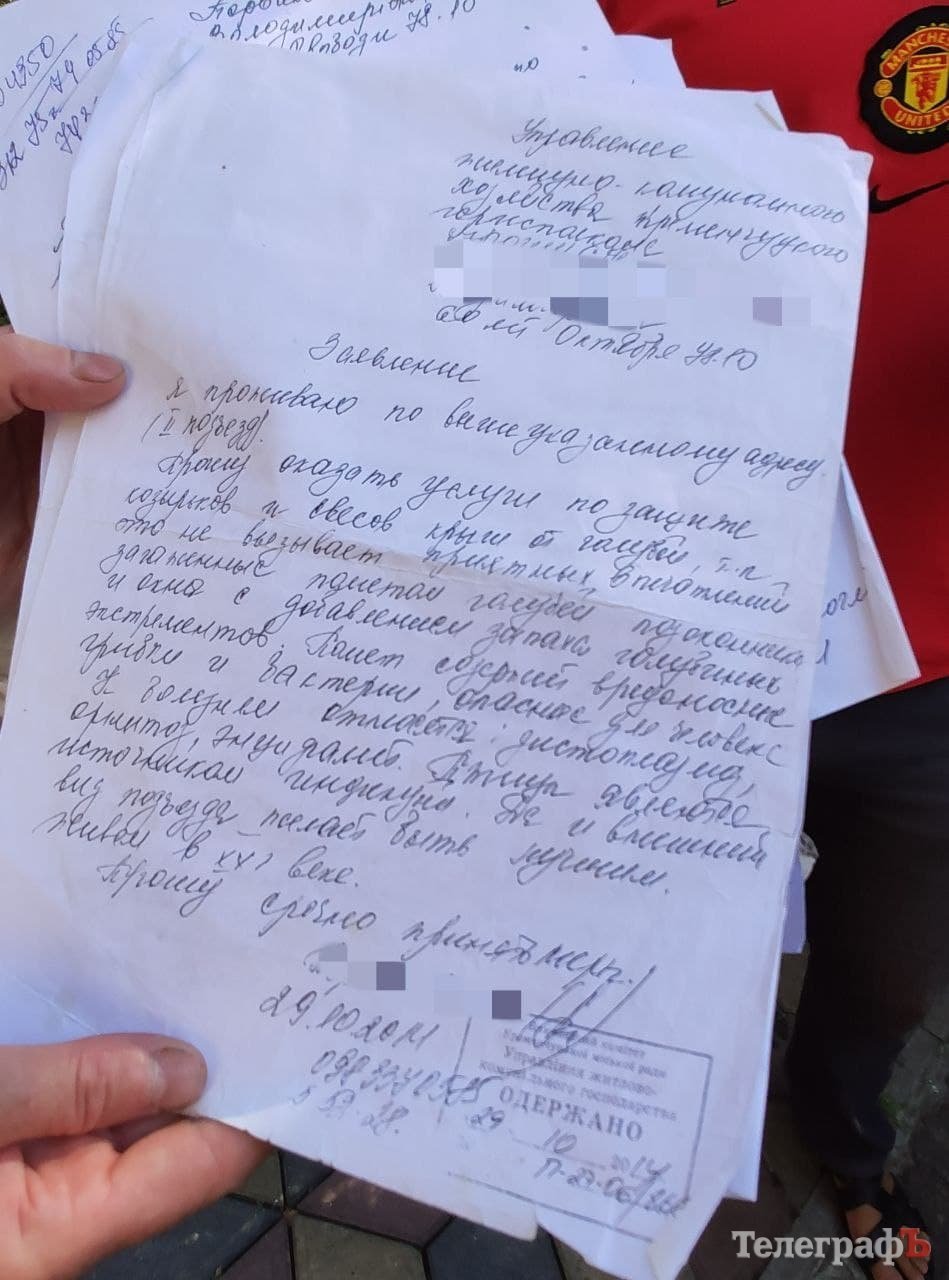 04350
Володимирівн
78.10
MANCHESTER
UNITED
Управление
жилищно-комунального
хозяйства Кременчугского
горисполкома
60 лет Октября 78.10
Заявление
Я проживаю по вышеуказанному адресу.
(II подъезд).
Прошу оказать услуги по защите
козырьков и свесов крыши от голубей, т.к.
это не вызывает приятных впечатлений
загаженные пометом голубей подоконники
и окна с добавлением запаха голубиных
экстрементов. Помет содержит вредоносные
грибки и бактерии, опасные для человека
К болезням относятся: гистоплазма,
орнитоз, энцефалит. Птицы являются
источником инфекции. Да и внешний
вид подъезда желает быть лучшим.
Живем в XXI веке.
Прошу срочно принять меры.
29.10.2014
Управління житлово-
комунального господарства
ОДЕРЖАНО
29 10 2014
ТелеграфЪ